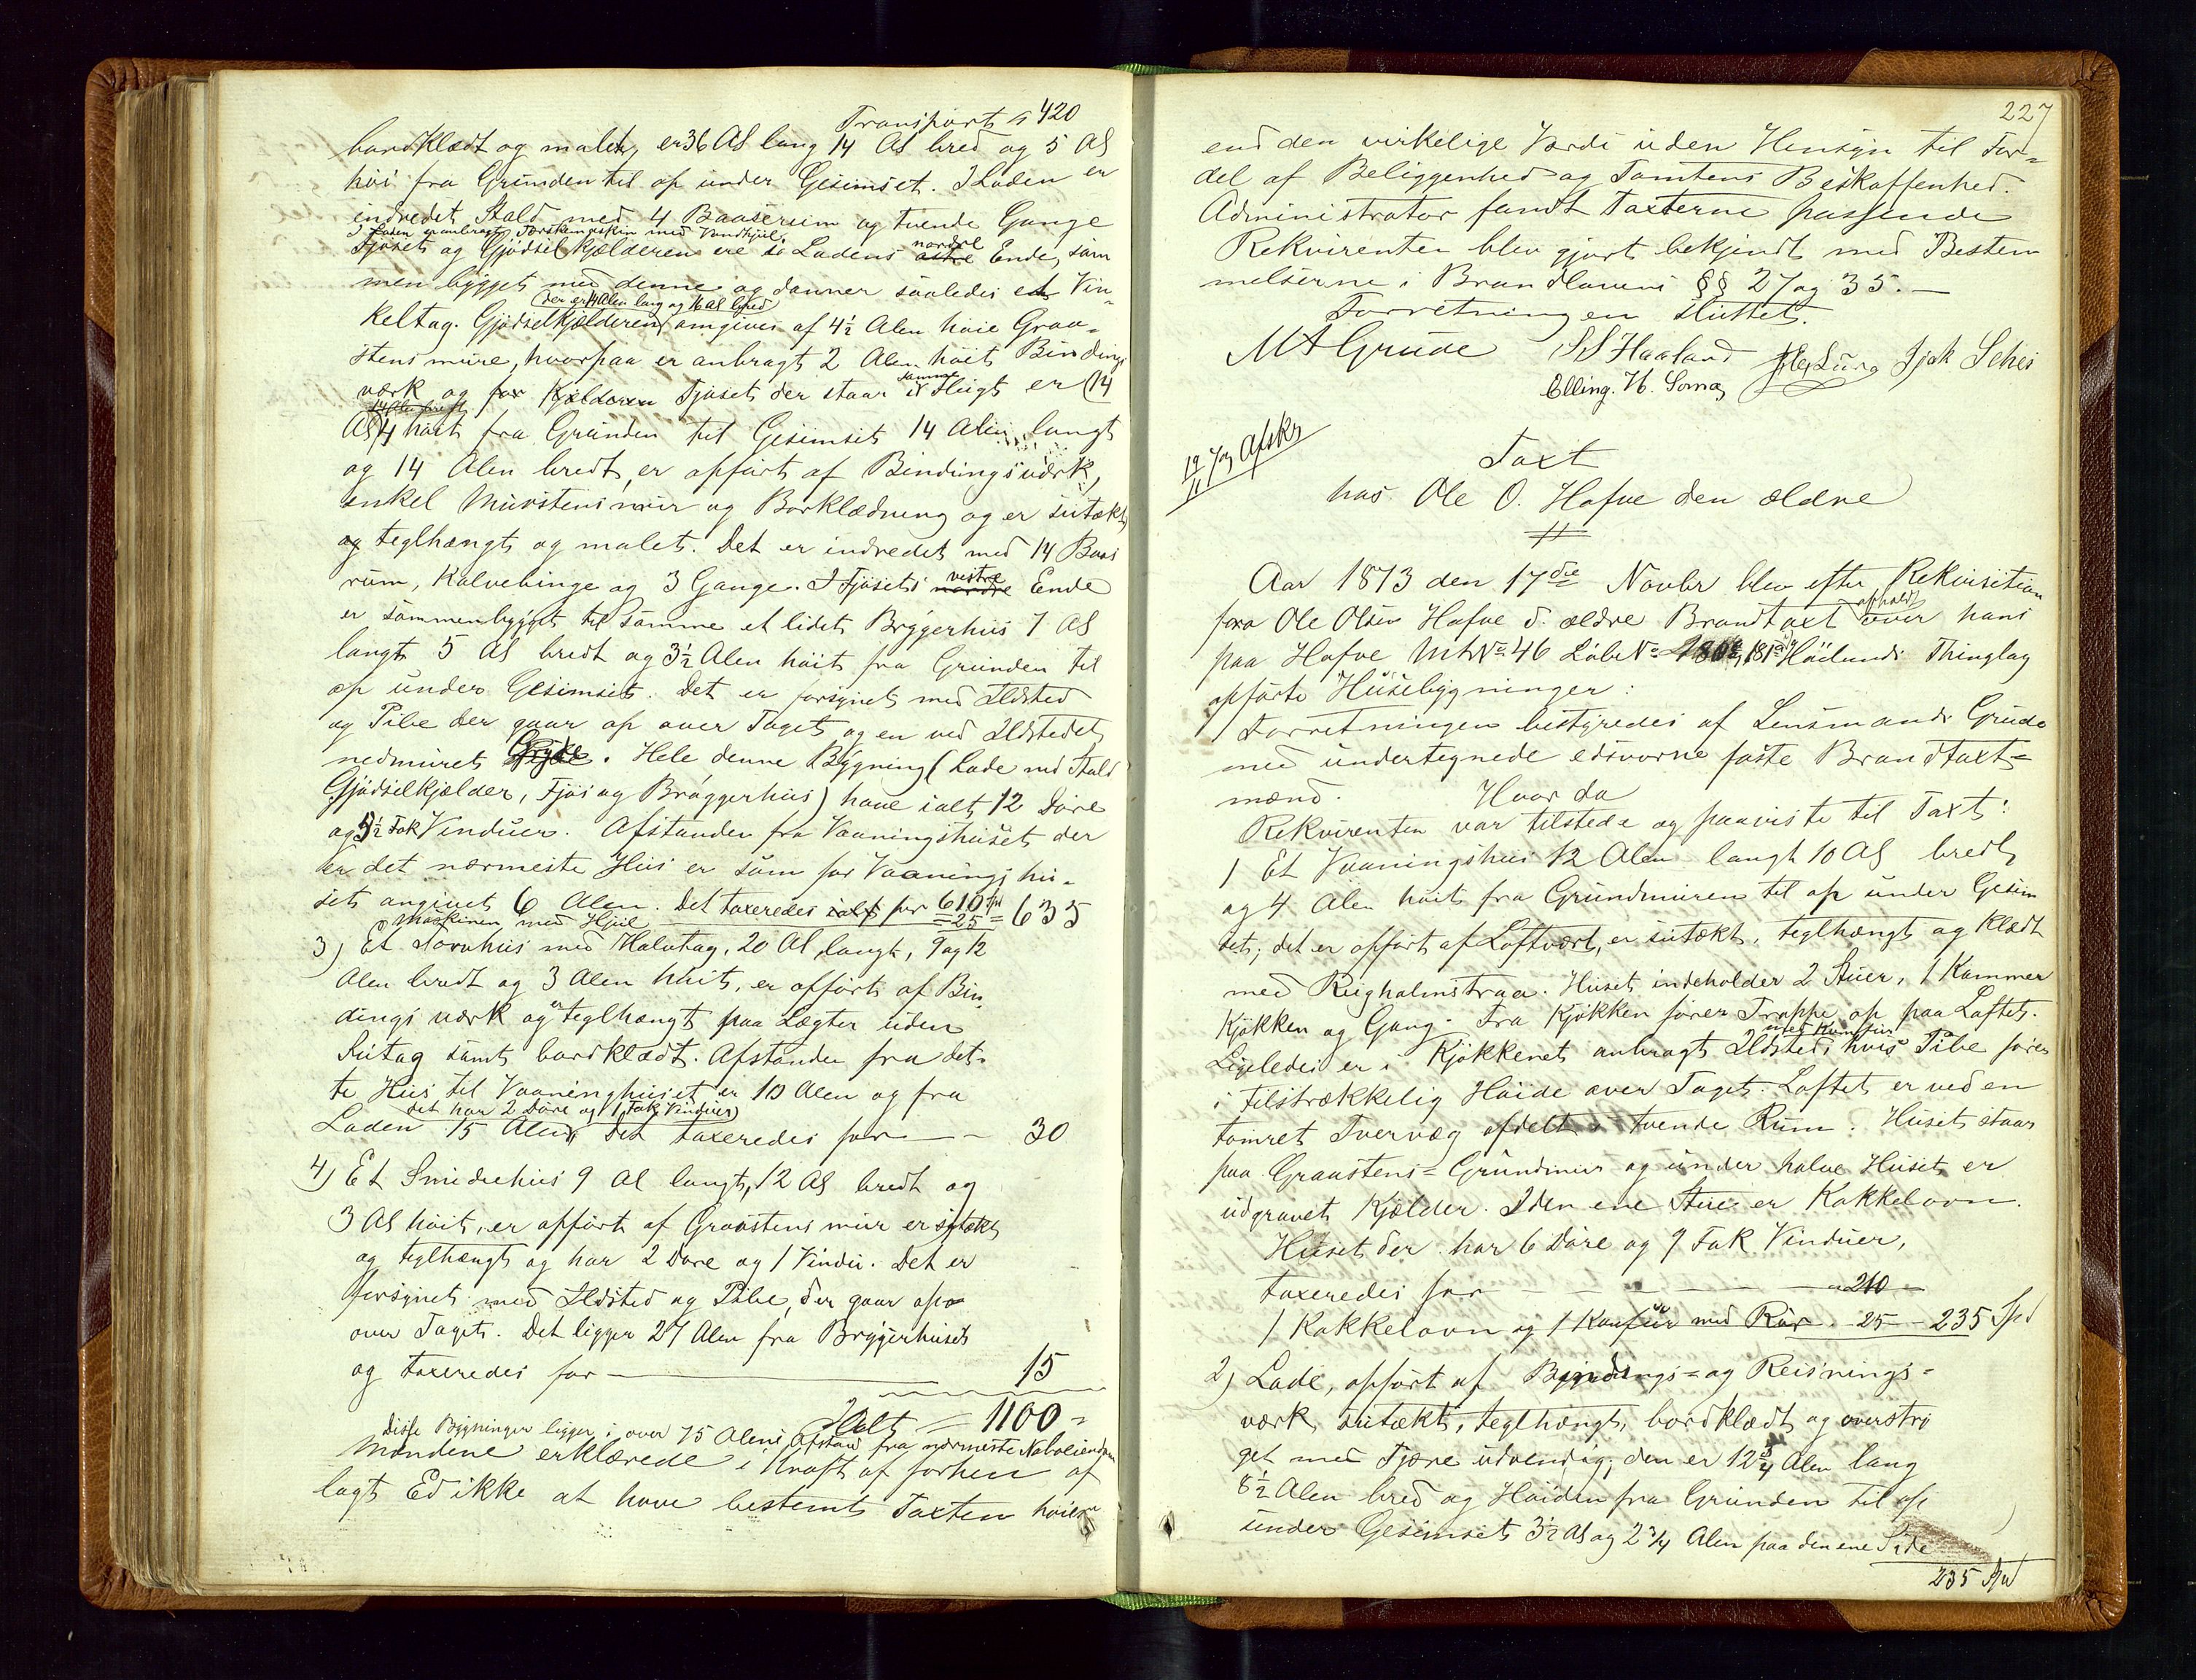 Transport 420
bordklædt og malet, er 36 Al lang 14 Al bred og 5 Al
høi fra Grunden til op under Gesimset. I Laden er
indredet Stald med 4 Baaserum og tvende Gange
I Laden er anbragt Tærskemaskin med Vandhjul
Fjøset og Gjødselkjælderen ere i Ladens østre nordre Ende, sam
men bygget med denne og danner saaledes et Vin-
der er 14 Alen lang og 16 Al bred
keltag. Gjødselkjælderen omgives af 4½ Alen høie Graa-
stens mure, hvorpaa er anbragt 2 Alen høit Bindings
værk og for Kjælderen Fjøset der staar i samme Flugt er 14
Al 4 høit fra Grunden til Gesimset 14 Alen langt
og 14 Alen bredt, er opført af Bindingsværk,
enkel Murstensmur og Borklædning og er sutækt
og teglhængt og malet. Det er indredet med 14 Baas
rum, Kalvebinge og 3 Gange. I Fjøsets nordre vestre Ende
er sammenbygget til samme et lidet Bryggerhus 7 Al
langt 5 Al bredt og 3½ Alen høit fra Grunden til
op under Gesimset. Det er forsynet med Ildsted
og Pibe der gaar op over Taget og en ved Ildstedet
nedmuret Gryde. Hele denne Bygning (Lade med Stald
Gjødselkjælder, Fjøs og Bryggerhus) have ialt 12 Døre
og 5½ Fak Vinduer. Afstanden fra Vaaningshuset der
er det nærmeste Hus er som for Vaaningshu-
set angivet 6 Alen. Det taxeredes ialt for 610 Spd
Maskinen med Hjul = 25 = 635
3) Et Tørvhus med Halvtag, 20 Al langt, 9 og 12
Alen bredt og 3 Alen høit, er opført af Bin-
dings værk og er teglhængt paa Lægter uden
Sutag samt bordklædt. Afstanden fra det-
te Hus til Vaaninghuset er 10 Alen og fra
det har 2 Døre og 1 Fak Vinduer
Laden 15 Alen. Det taxeredes for — - 30
4) Et Smidiehus 9 Al langt, 12 Al bredt og
3 Al høit, er opført af Graastens mur er sutækt
og teglhængt og har 2 Døre og 1 Vindu. Det er
forsynet med Ildsted og Pibe, der gaar op
over Taget. Det ligger 27 Alen fra Bryggerhuset
og taxeredes for — 15
Ialt = 1100 =
Disse Bygninger ligger i over 75 Alens Afstand fra nærmeste Naboeiendom
Mændene erklærede i Kraft af forhen af
lagt Ed ikke at have bestemt Taxten høiere
227
end den virkelige Værdi uden Hensyn til For-
del af Beliggenhed og Tomtens Beskaffenhed.
Administrator fandt Taxterne passende
Rekvirenten blev gjort bekjendt med Bestem
melserne i Brandlovens §§ 27 og 35. —
Forretningen sluttet.
M A Grude S S Haaland Isak Schei
Elling. H. Soma
Afskr
Taxt
hos Ole O. Hofve den ældre
Aar 1873 den 17de Novbr blev efter Rekvisition
fra Ole Olsen Hofve d. ældre Brandtaxt afholdt over hans
paa Hofve Mt No 46 Løbe No 181 Høilands Thinglag
opførte Husebygninger:
Forretningen bestyredes af Lensmand Grude
med undertegnede edsvorne faste Brandtaxt-
mænd. Hvor da
Rekvirenten var tilstede og paaviste til Taxt:
1 Et Vaaningshus 12 Alen langt 10 Al bredt
og 4 Alen høit fra Grundmuren til op under Gesim
set; det er opført af Loftvert, er sutækt, teglhængt og klædt
med Rughalmstraa. Huset indeholder 2 Stuer, 1 Kammer
Kjøkken og Gang. Fra Kjøkken fører Trappe op paa Loftet.
Ligeledes er i Kjøkkenet anbragt Ildsted med Komfur hvis Pibe fører
i tilstrækkelig Høide over Taget. Loftet er ved en
tømret Tvervæg afdelt i tvende Rum. Huset staar
paa Graastens-Grundmur og under halve Huset er
udgravet Kjælder. I den ene Stue er Kakkelovn.
Huset der har 6 Døre og 9 Fak Vinduer,
taxeredes for — — — 210 —
1 Kakkelovn og 1 Komfur med Rør. 25 — 235 Spd
2) Lade, opført af Bindings- og Reisnings-
værk sutækt, teglhængt, bordklædt og overstrø
get med Tjære udvendig; den er 12¾ Alen lang
8½ Alen bred og Høiden fra Grunden til op
under Gesimset 3½ Al og 2¾ Alen paa den ene Side
235 Spd